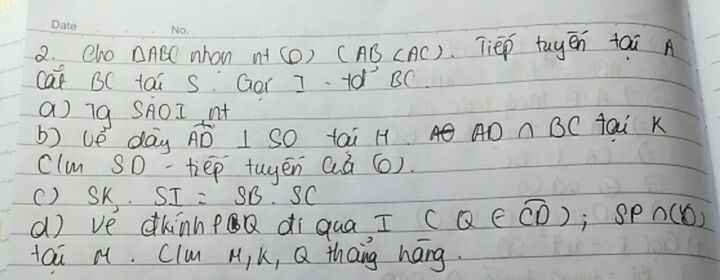 Date No.
2. Cho ΔABC nhọn nt (O) (AB < AC). Tiếp tuyến tại A
cắt BC tại S. Gọi I - tđ BC.
a) Tg SAOI nt
b) Vẽ dây AD ⊥ SO tại H. AD ∩ BC tại K
C/m SD - tiếp tuyến của (O).
c) SK. SI = SB. SC
d) Vẽ đkính PQ đi qua I (Q ∈ CD); SP ∩ (O)
tại M. C/m M, K, Q thẳng hàng.